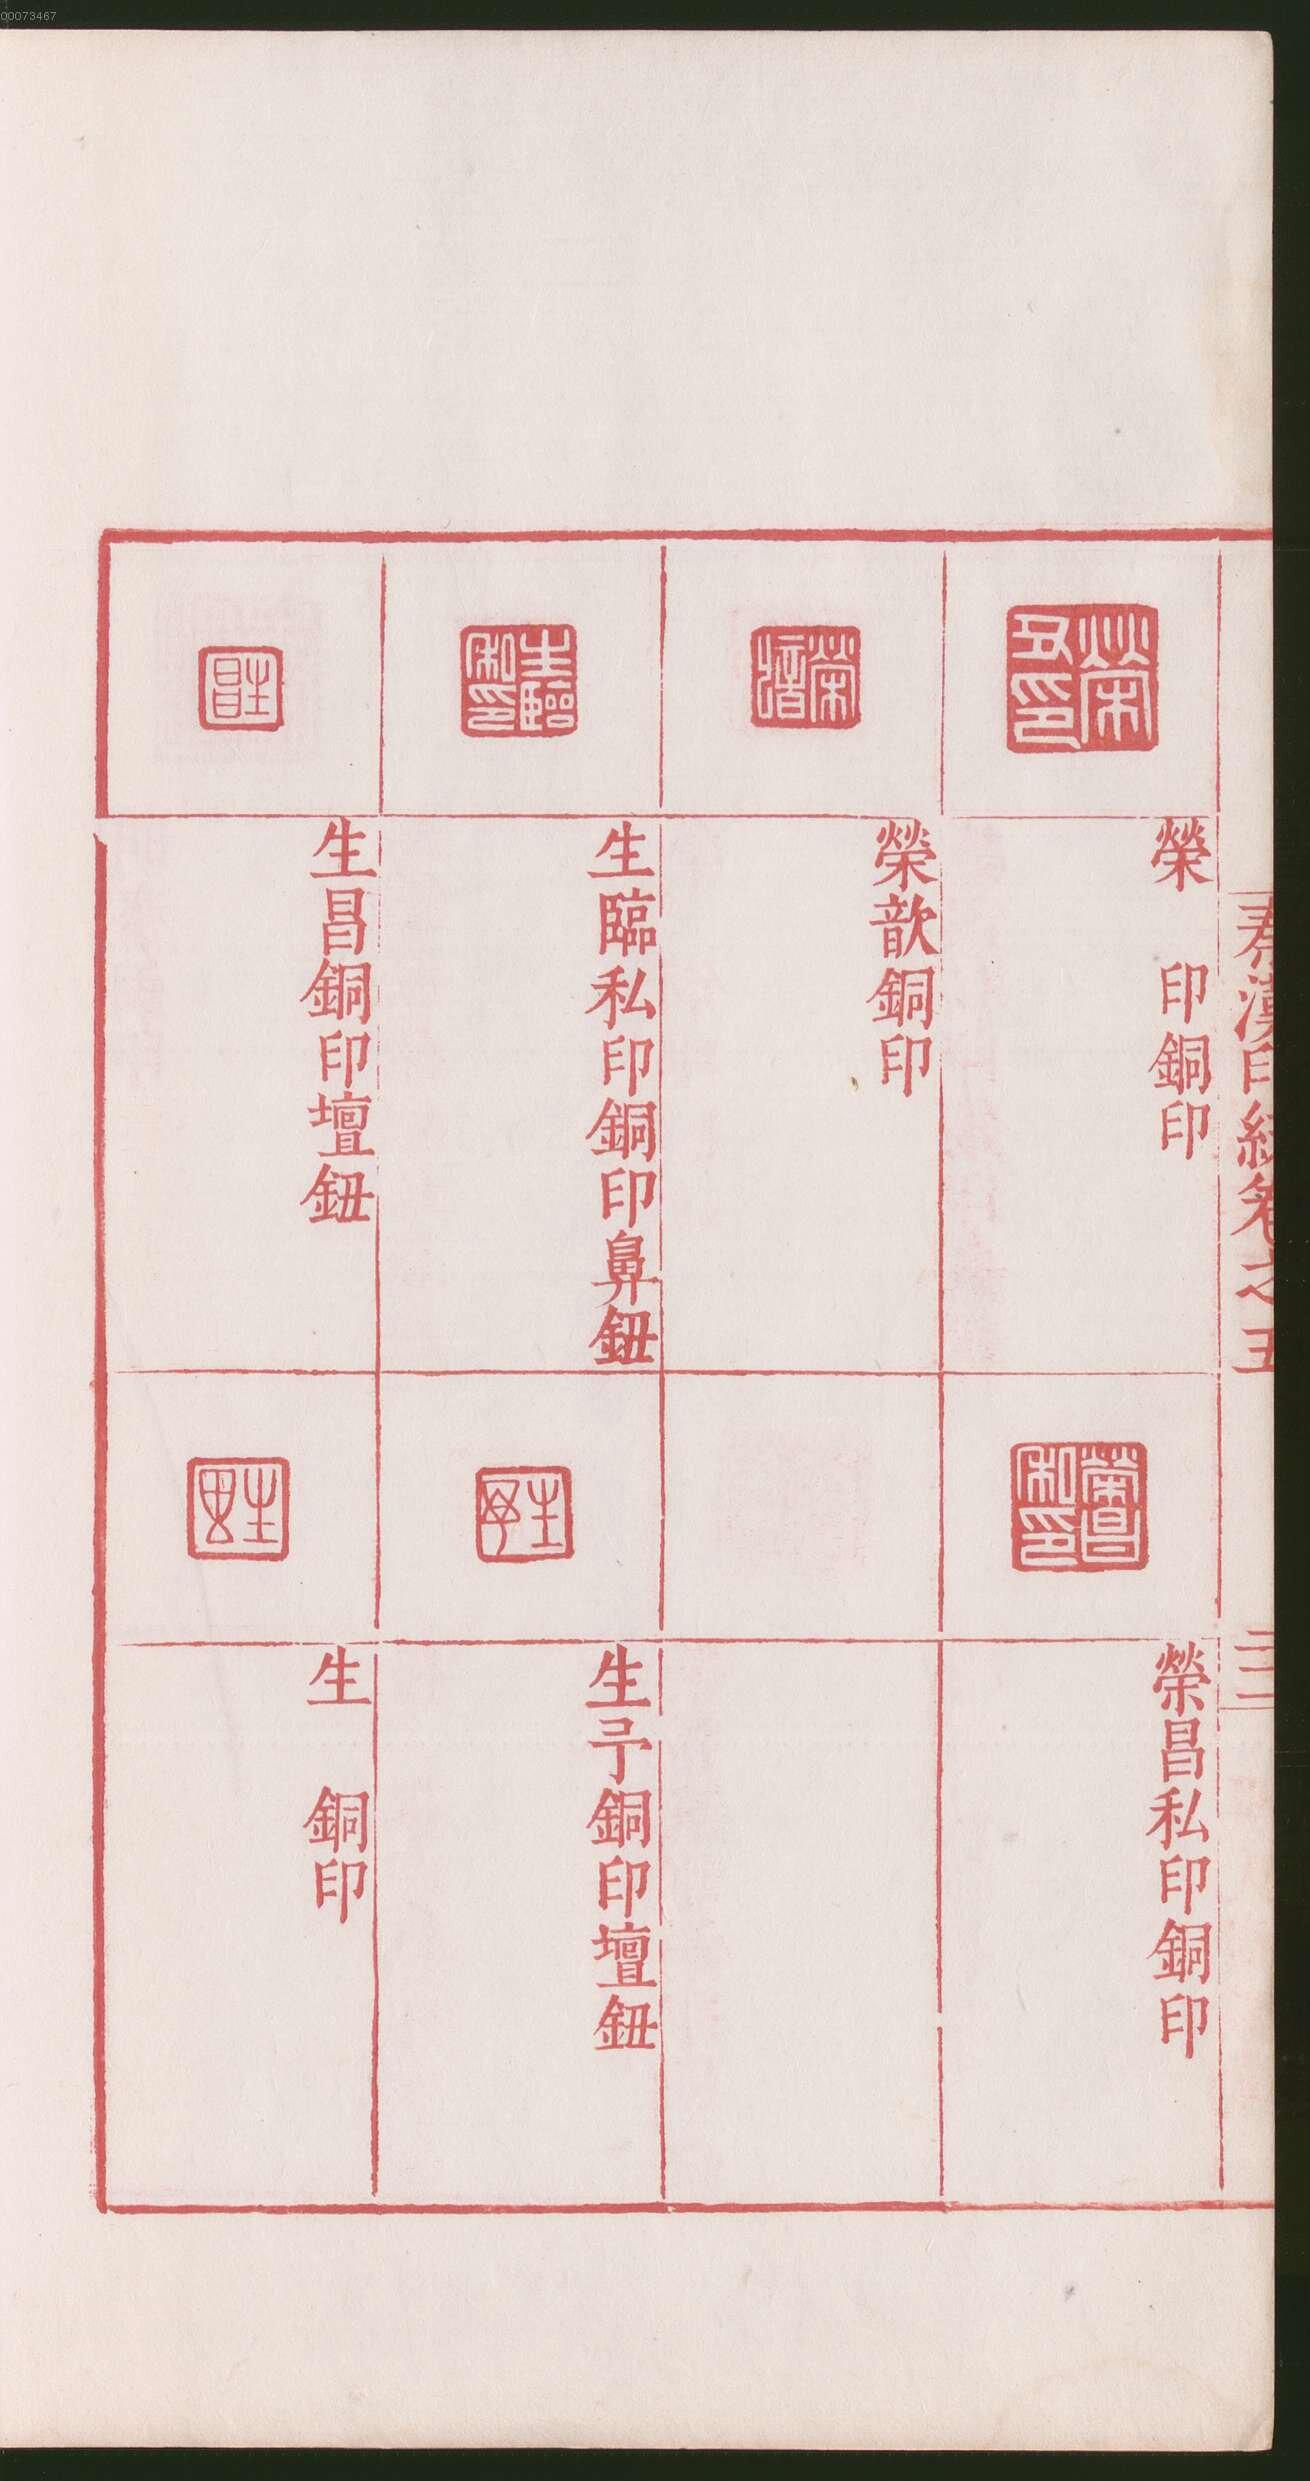 00073467
秦漢印統卷之五
榮　印銅印
榮歆銅印
生臨私印銅印鼻鈕
生昌銅印壇鈕
榮昌私印銅印
生予銅印壇鈕
生　銅印